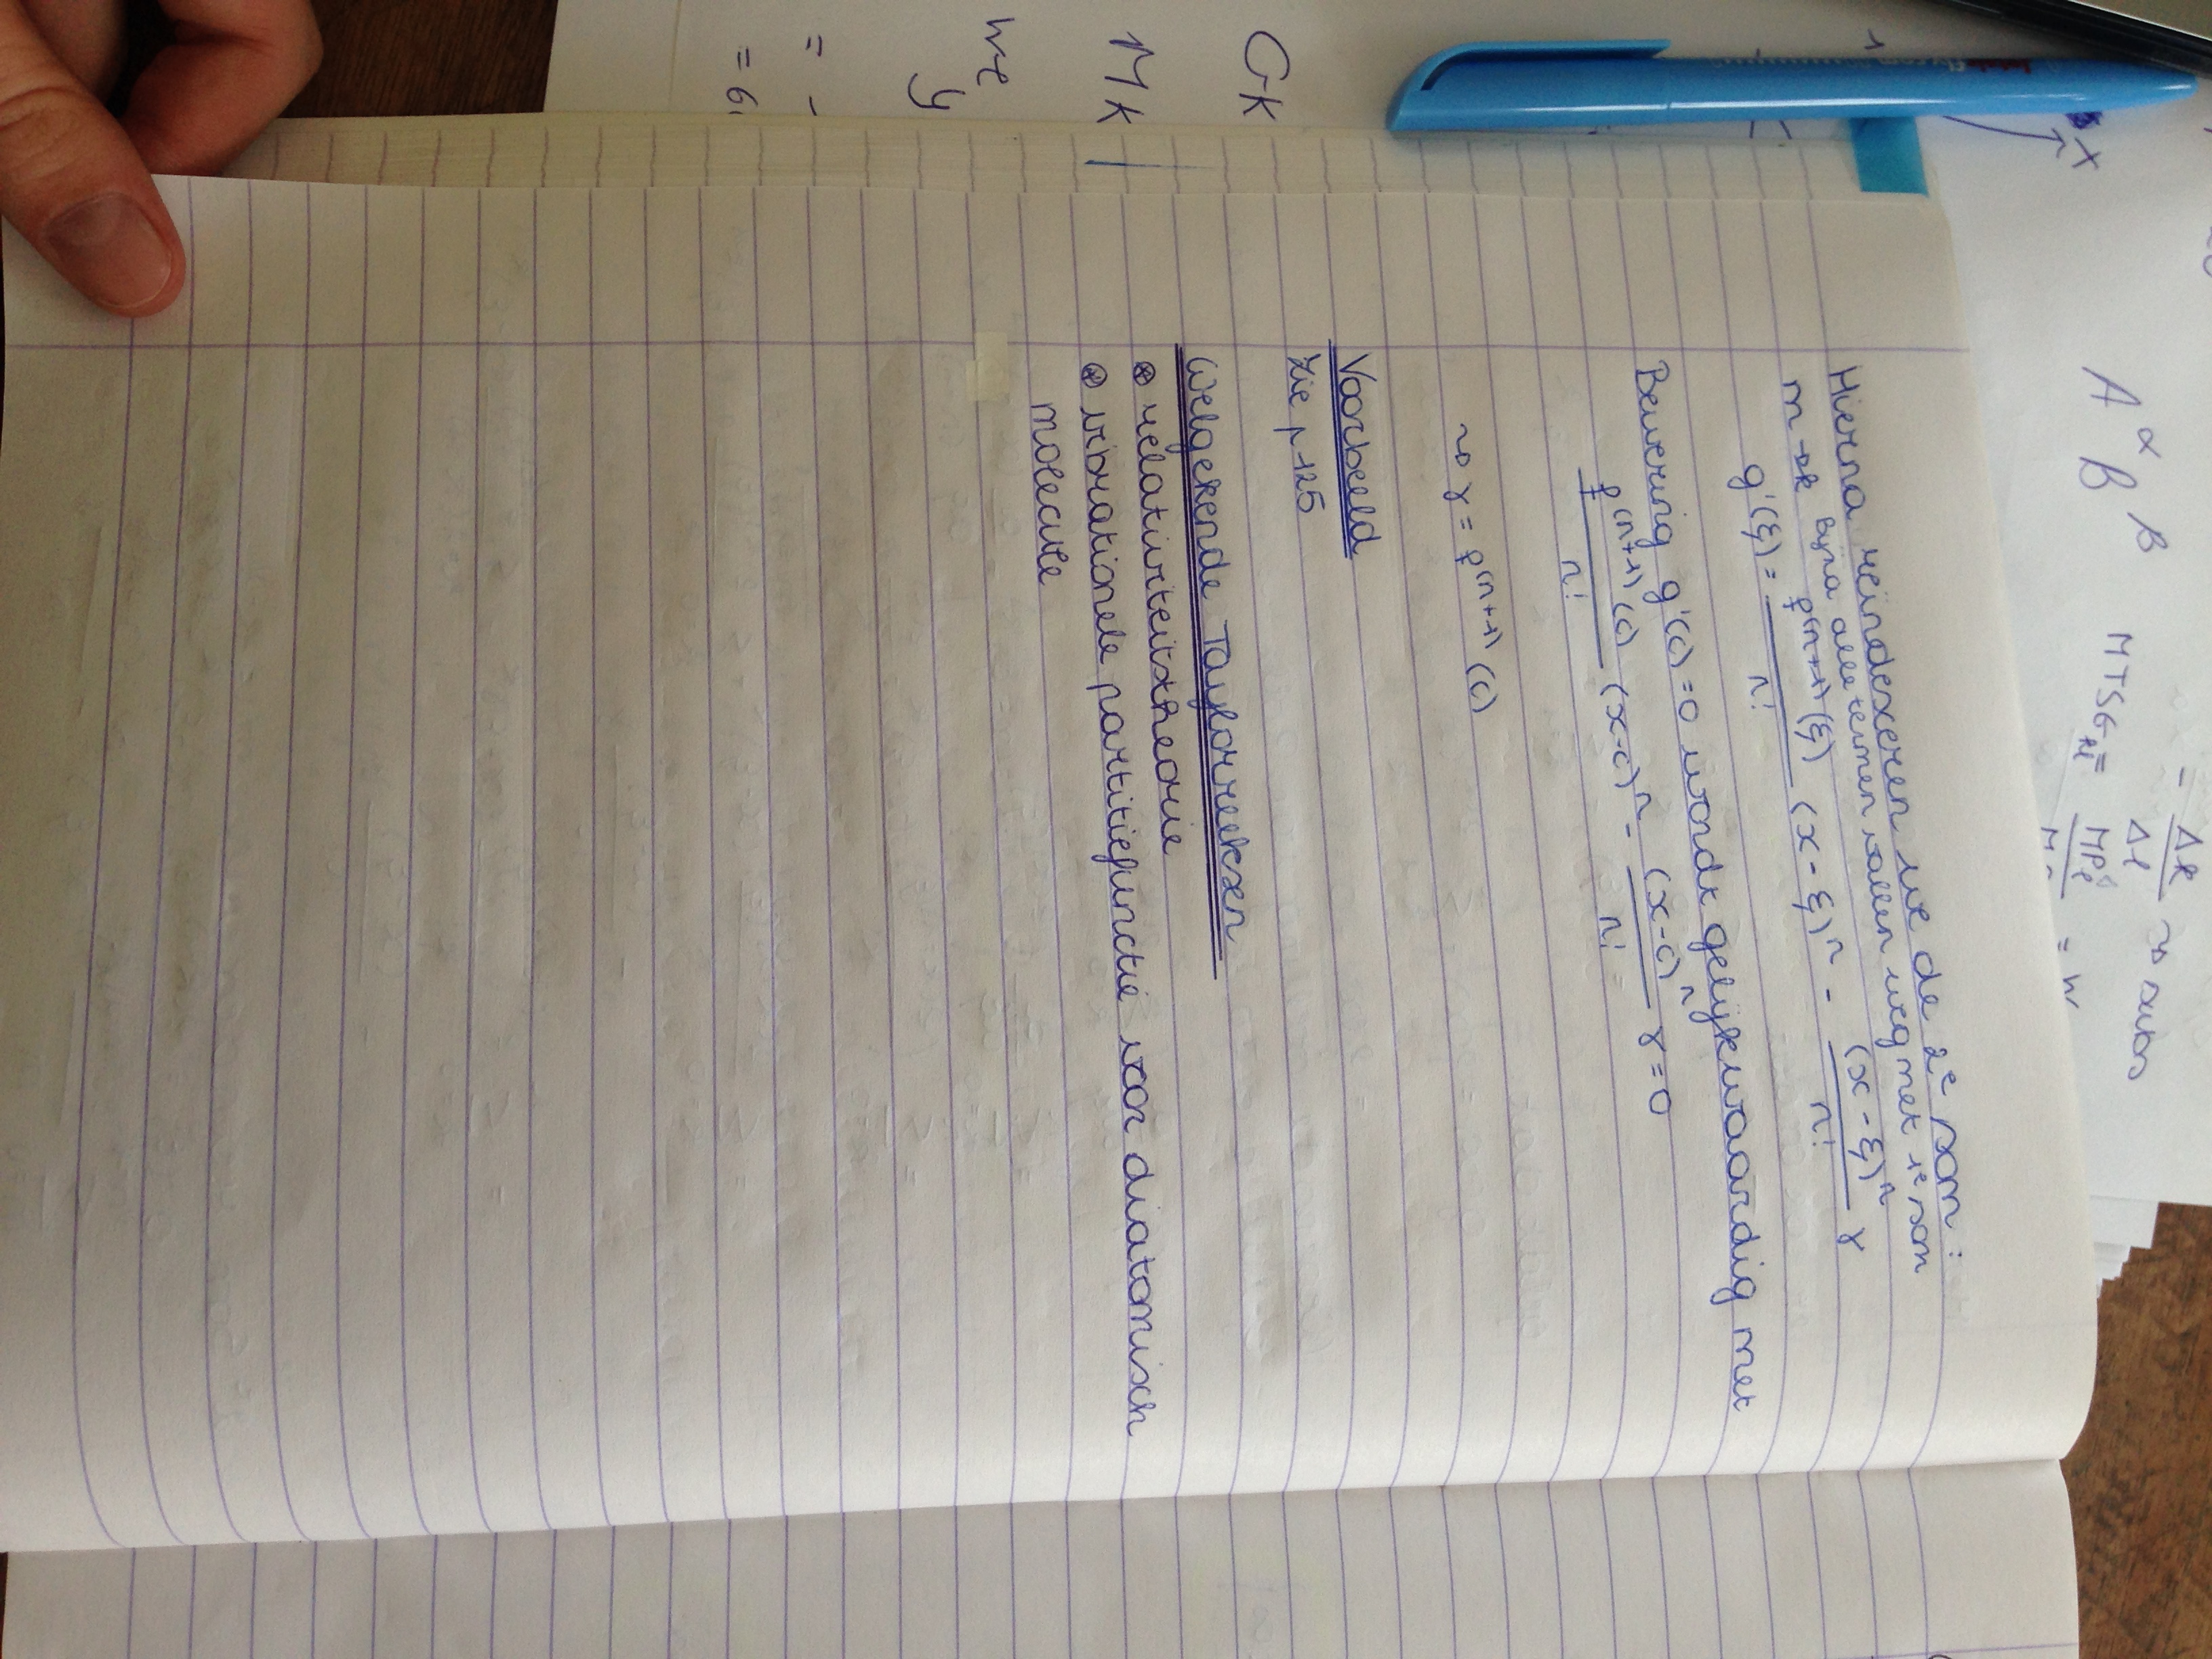 A^α B^β
- Δk/Δl ⇝ subs
MTSG_kl = MPl/
= w
x
Hierna reïndexeren we de 2e som :
m → k Bijna alle termen vallen weg met 1e som
g'(ξ) = f^(n+1)(ξ)/n! (x-ξ)^n - (x-ξ)^n/n! γ
Bewering g'(c) =0 wordt gelijkwaardig met
f^(n+1)(c)/n! (x-c)^n - (x-c)^n/n! γ = 0
⇝ γ = f^(n+1)(c)
Voorbeeld
Zie p 125
Welgekende Taylorreeksen
⊛ relativiteitstheorie
⊛ vibrationele partitiefunctie voor diatomisch
molecule
GK
MK
we
y
= -
= 6